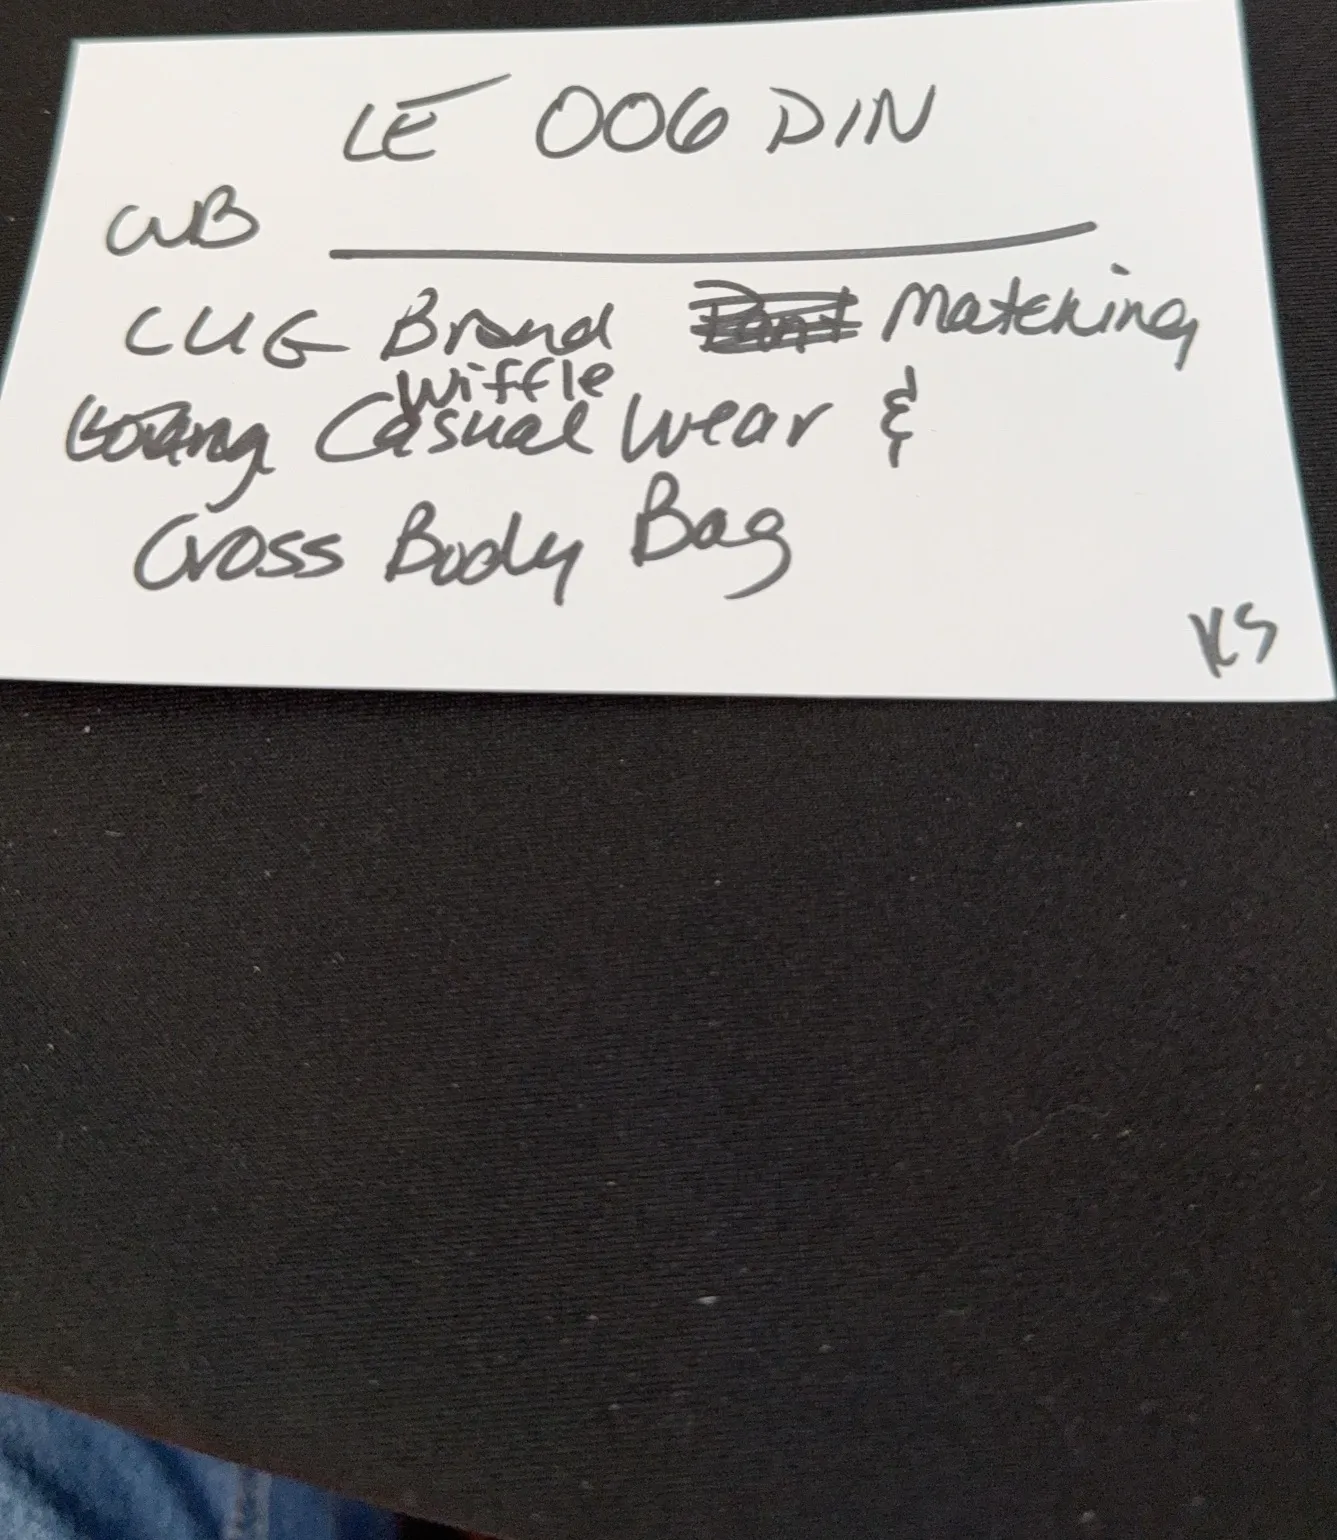 LE 006 DIN
WB
CUG Brand Matching
Wiffle
Casual Wear &
Cross Body Bag
KS